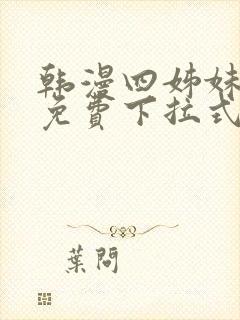 韩漫四姊妹
免費下拉式
葉問